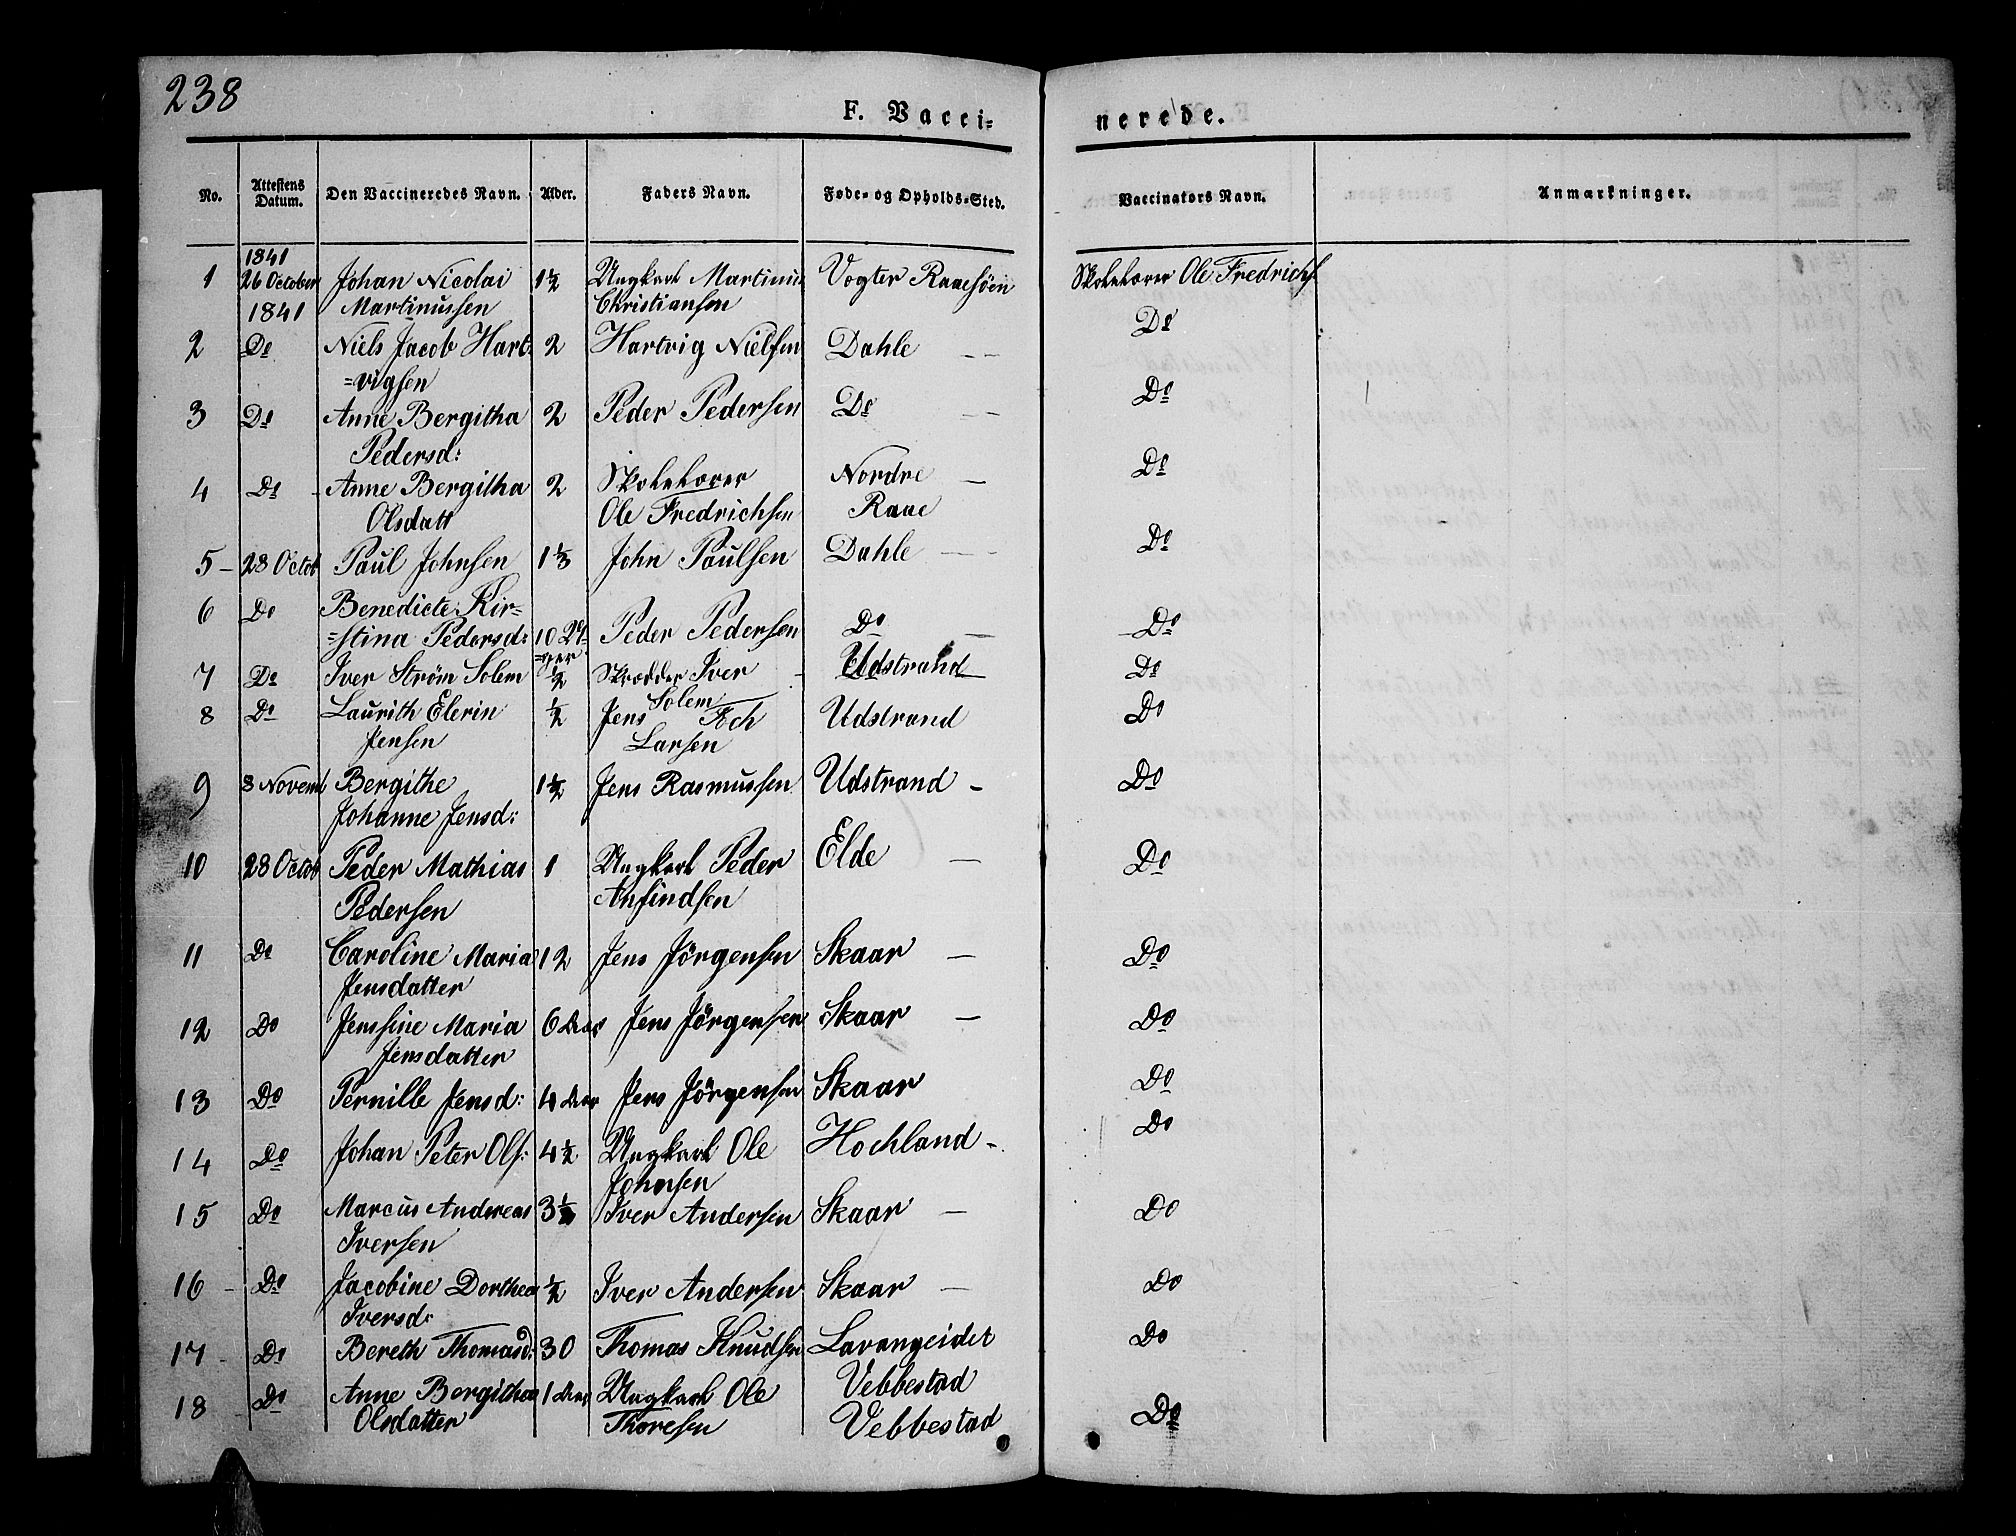 238
F. Vacci=
nerede.
No. Attestens Datum. Den Vaccineredes Navn. Alder. Faders Navn. Føde- og Opholds-Sted. Vaccinators Navn. Anmærkninger.
1841
1 26 October Johan Nicolai 1½ Ungkarl Martinus Vogter Raaesöen Skolelærer Ole Fredrichs
1841 Martinussen Christiansen
2 Do Niels Jacob Hart 2 Hartvig Nielsen Dahle Do
=vigsen
3 Do Anne Bergitha 2 Peder Pedersen Do Do
Pedersd:
4 Do Anne Bergitha 2 Skolelærer Nordre Do
Olsdatt Ole Fredrichsen Raae
5 28 Octob Paul Johnsen 1⅓ John Paulsen Dahle Do
6 Do Benedicte Kir=
=stina Pedersd: 10 Peder Pedersen Do Do
7 Do Iver Strøm Solem ½ Skrædder Iver Udstrand Do
Solem
8 Do Laurith Elerin ½ Jens Foch Udstrand Do
Jensen Larsen
9 8 Novem Bergithe 1½ Jens Rasmussen Udstrand Do
Johanne Jensd:
10 28 Octob Peder Mathias 1 Ungkarl Peder Elde Do
Pedersen Anfindsen
11 Do Caroline Maria 12 Jens Jörgensen Skaar Do
Jensdatter
12 Do Jenssine Maria 6 Aar Jens Jörgensen Skaar Do
Jensdatter
13 Do Pernille Jensd: 4 Aar Jens Jörgensen Skaar Do
14 Do Johan Peter Ols: 4½ Ungkarl Ole Hochland Do
Johnsen
15 Do Marcus Andreas 3½ Iver Andersen Skaar Do
Iversen
16 Do Jacobine Dorthea ½ Iver Andersen Skaar Do
Iversd:
17 Do Bereth Thomasd: 30 Thomas Knudsen Lavangeidet Do
Vebbestad
18 Do Anne Bergitha 1 Aar Ungkarl Ole Vebbestad Do
Olsdatter Thoresen